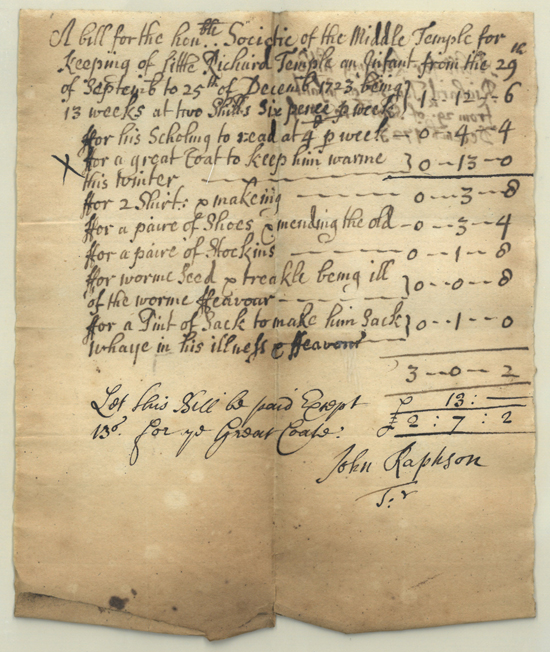 A bill for the hon:ble Societie of the Middle Temple for
keeping of little Richard Temple an Infant from the 29th
of Septemb to 25th of Decemb 1723 being
13 weeks at two Shills Six pence p week } 1--12--6
ffor his Scholing to read at 4d p week -- 0--4--4
X ffor a great Coat to keep him warme } 0--13--0
this winter
ffor 2 Shirts & makeing 0--3--8
ffor a paire of Shoes & mending the old -- 0--3--4
ffor a paire of Stockins 0--1--8
ffor worme Seed & treakle being ill } 0--0--8
of the worme ffeavour
ffor a Pint of Sack to make him Sack } 0--1--0
whaye in his illness & ffeavour
3--0--2
Let this Bill be paid Except 13:--
13s. for ye Great Coate: £ 2:7:2
John Raphson
Tr